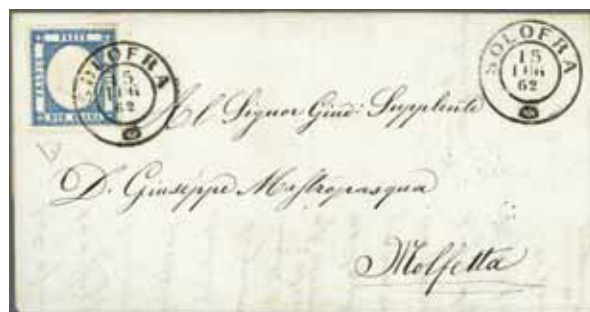 SOLOFRA
15
LUG
62
SOLOFRA
15
LUG
62
Al Signor Giud: Supplente
D. Giuseppe Mastropasqua
Molfetta